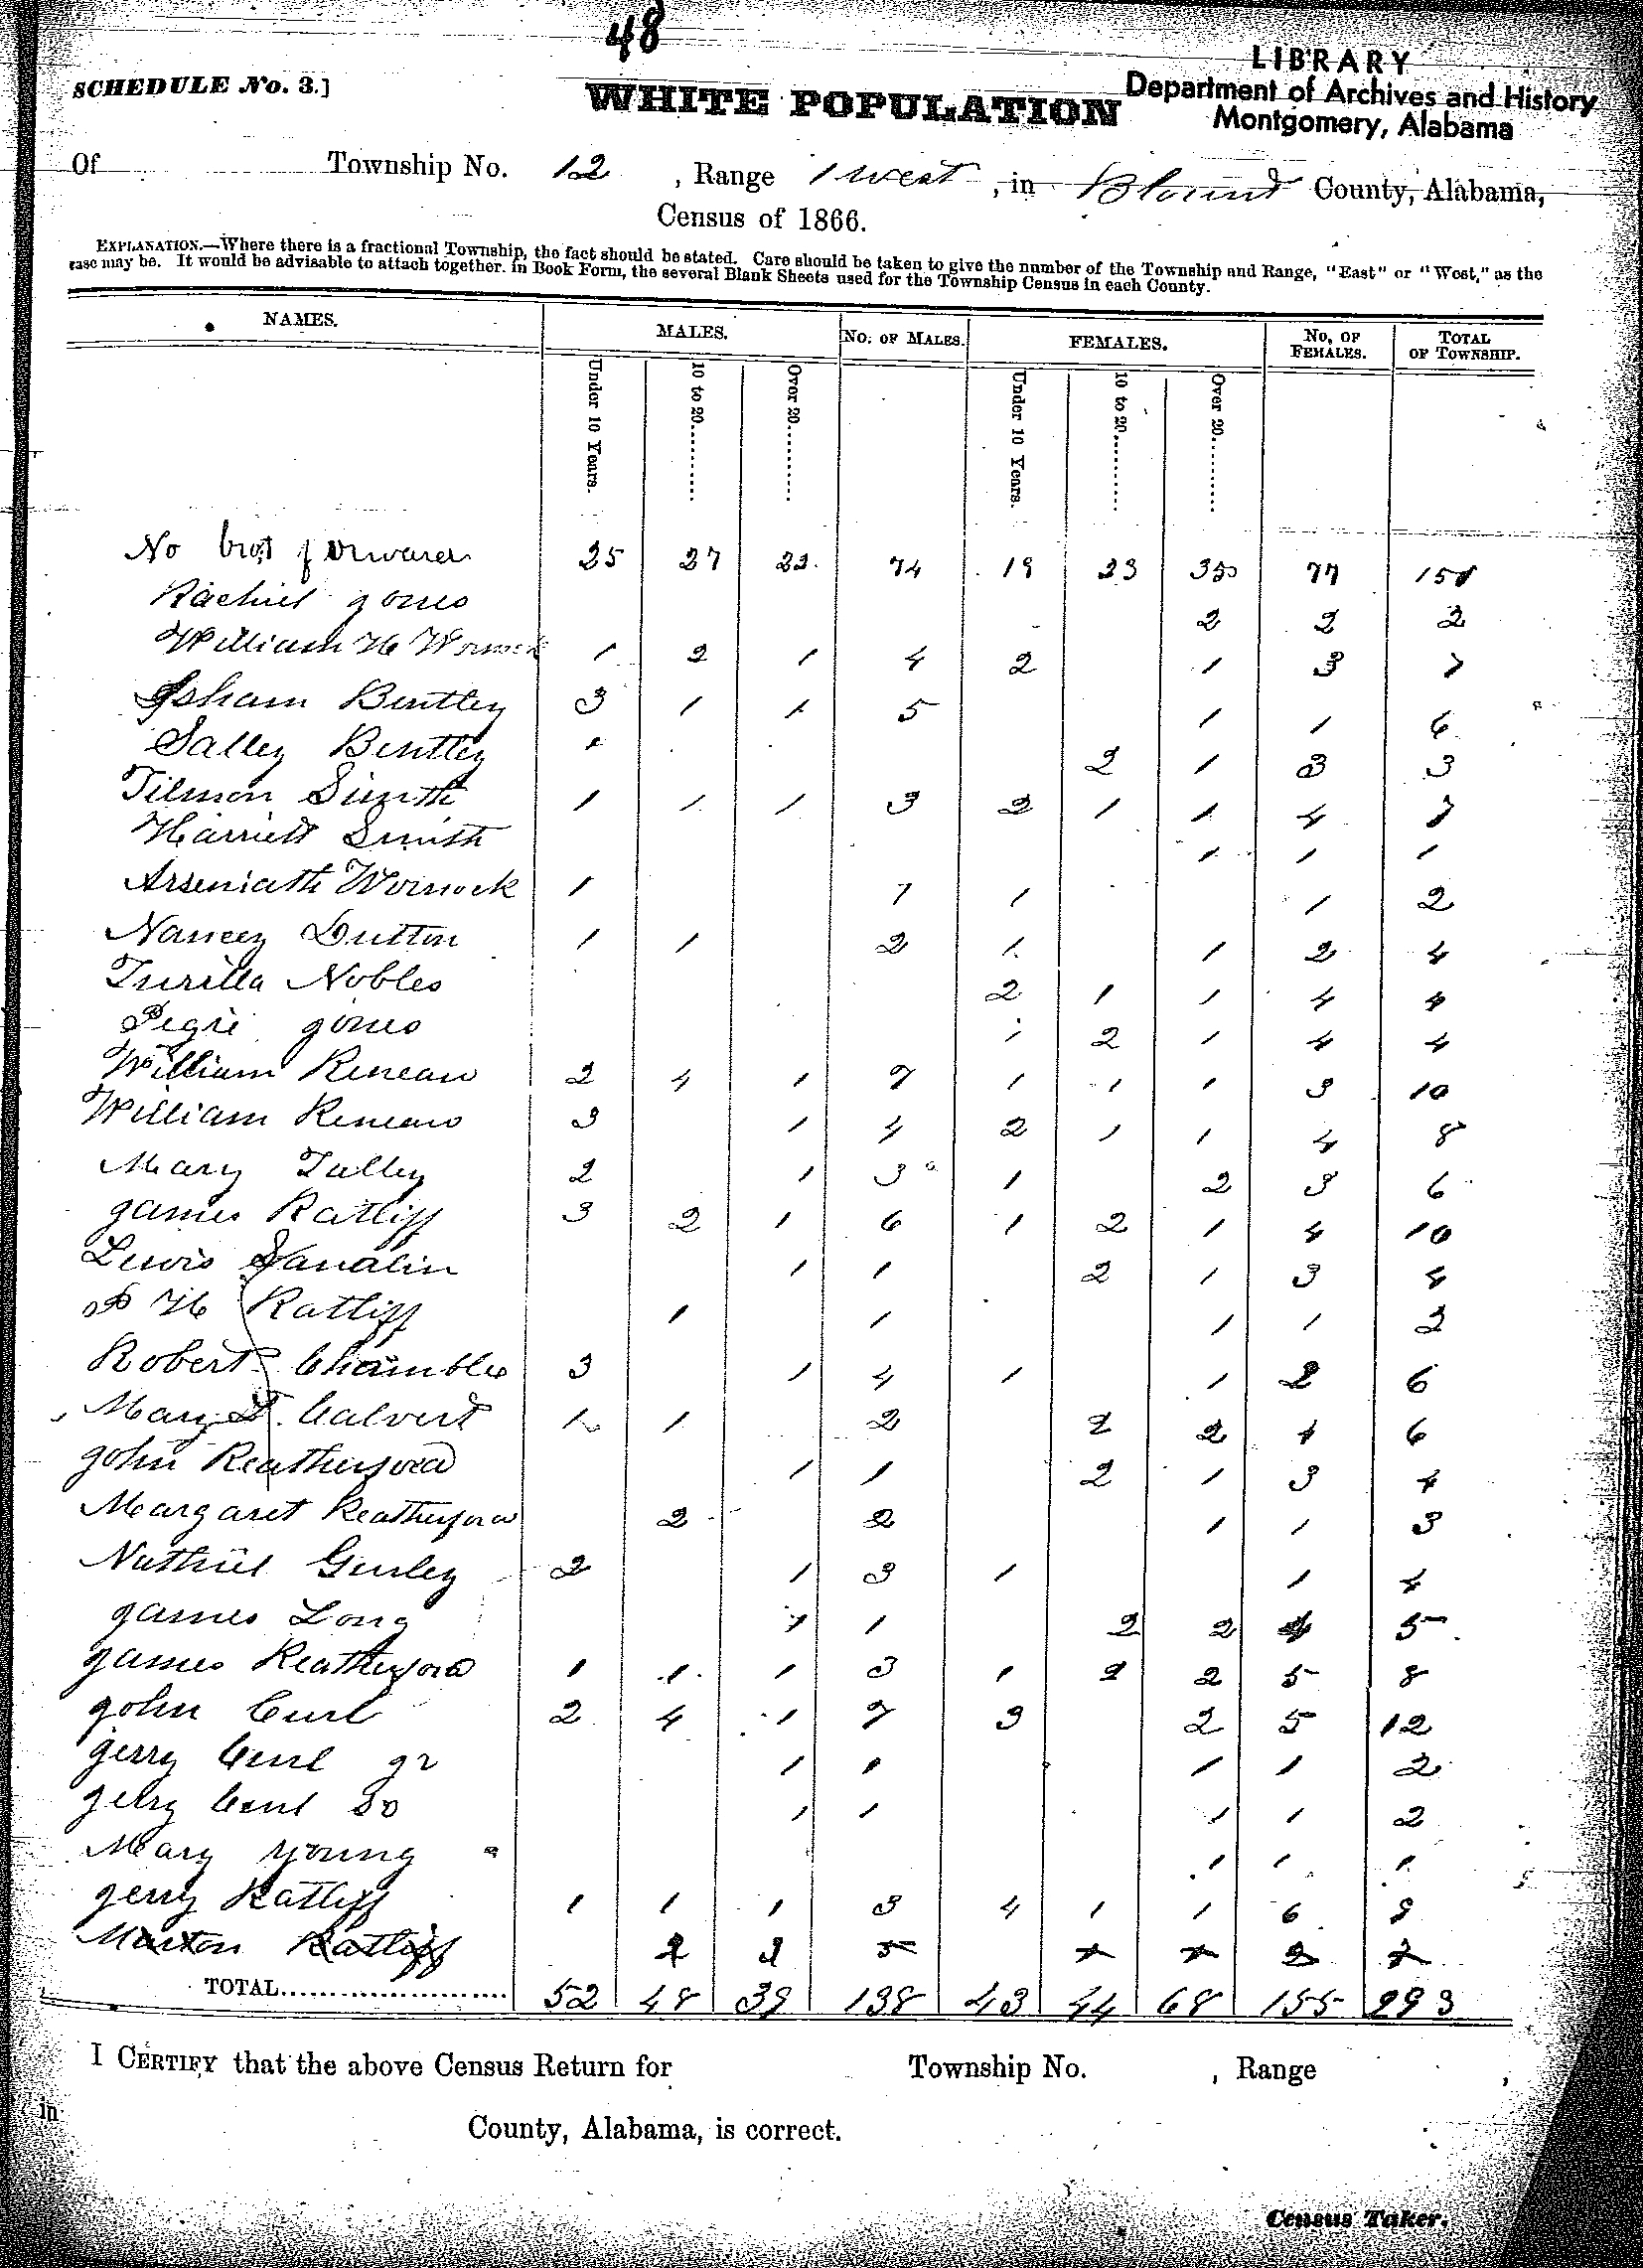 48
LIBRARY
Department of Archives and History
Montgomery, Alabama
SCHEDULE No. 3.]
WHITE POPULATION
Of Township No. 12, Range 1 west, in Blount County, Alabama,
Census of 1866.
EXPLANATION.—Where there is a fractional Township, the fact should be stated. Care should be taken to give the number of the Township and Range, "East" or "West," as the
case may be. It would be advisable to attach together. in Book Form, the several Blank Sheets used for the Township Census in each County.
NAMES. MALES. No. OF MALES. FEMALES. No. OF FEMALES. TOTAL OF TOWNSHIP.
Under 10 Years. 10 to 20. Over 20. Under 10 Years. 10 to 20. Over 20.
No brot forward 25 27 22 74 19 23 35 77 151
Rachiel Jones 2 2 2
William H Wornock 1 2 1 4 2 1 3 7
Isham Bentley 3 1 1 5 1 1 6
Salley Bentley 2 1 3 3
Tilmon Smith 1 1 1 3 2 1 1 4 7
Harriett Smith 1 1 1
Arseniath Wornock 1 1 1 1 2
Nancey Dutton 1 1 2 1 1 2 4
Turilla Nobles 2 1 1 4 4
Jones 1 2 1 4 4
William Reneau 2 4 1 7 1 1 1 3 10
William Reneau 3 1 4 2 1 1 4 8
Mary Talley 2 1 3 1 2 3 6
James Ratliff 3 2 1 6 1 2 1 4 10
Lewis Sandlin 1 1 2 1 3 4
H Ratliff 1 1 1 1 2
Robert Chamblee 3 1 4 1 1 2 6
Mary Calvert 1 1 2 2 2 4 6
John Reatherford 1 1 2 1 3 4
Margaret Reatherford 2 2 1 1 3
Nathiel Gurley 2 1 3 1 1 4
James Long 1 1 2 2 4 5
James Reatherford 1 1 1 3 1 2 2 5 8
John Curl 2 4 1 7 3 2 5 12
Jerry Curl Jr 1 1 1 1 2
Jerry Curl Sr 1 1 1 1 2
Mary Young 1 1 1
Jerry Ratliff 1 1 1 3 4 1 1 6 9
Ratliff
TOTAL 52 48 39 138 43 44 68 155 293
I CERTIFY that the above Census Return for Township No. , Range ,
in County, Alabama, is correct.
Census Taker.